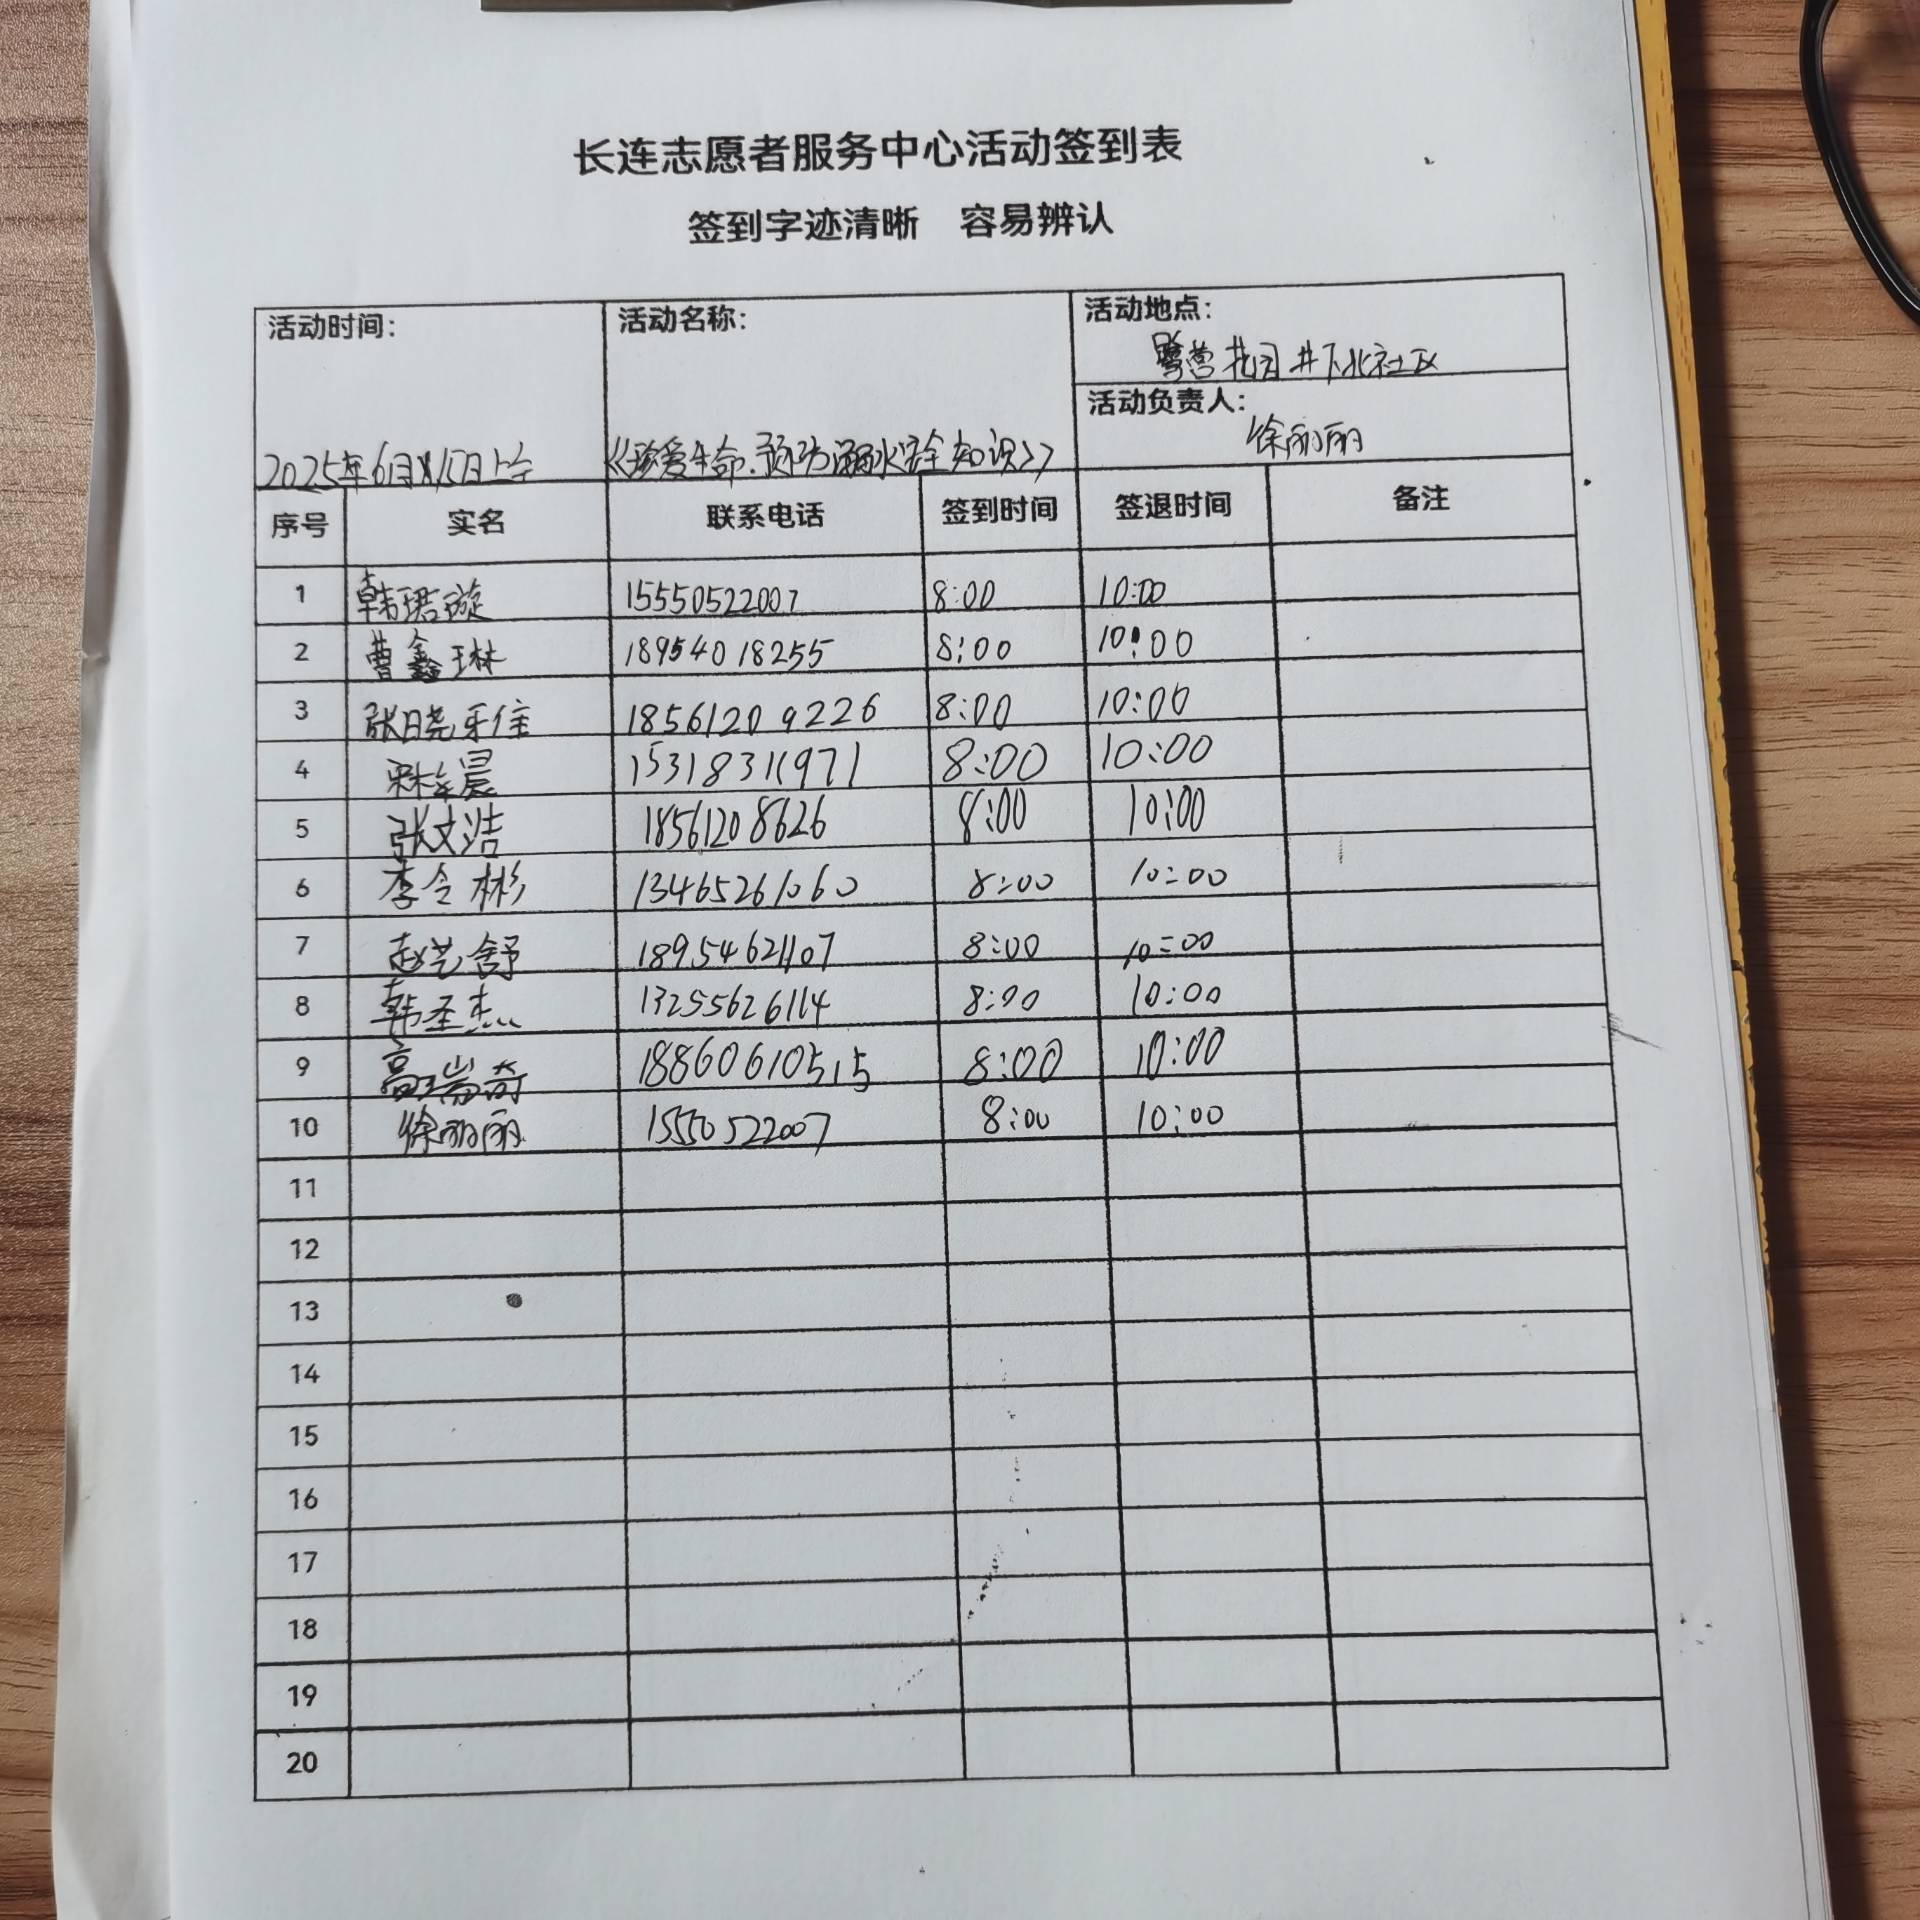 长连志愿者服务中心活动签到表
签到字迹清晰 容易辨认
活动时间: 活动名称: 活动地点:
花园井下北社区
活动负责人:
徐丽丽
2025年6月15日上午 《珍爱生命.预防溺水安全知识》
序号 实名 联系电话 签到时间 签退时间 备注
1 韩珺漩 15550522007 8:00 10:00
2 曹鑫琳 18954018255 8:00 10:00
3 张晓 18561209226 8:00 10:00
4 晨 15318311971 8:00 10:00
5 张文洁 18561208626 8:00 10:00
6 李令彬 13465261060 8:00 10:00
7 赵艺舒 18954621107 8:00 10:00
8 韩圣杰 13255626114 8:00 10:00
9 高瑞奇 18860610515 8:00 10:00
10 徐丽丽 15550522007 8:00 10:00
11
12
13
14
15
16
17
18
19
20